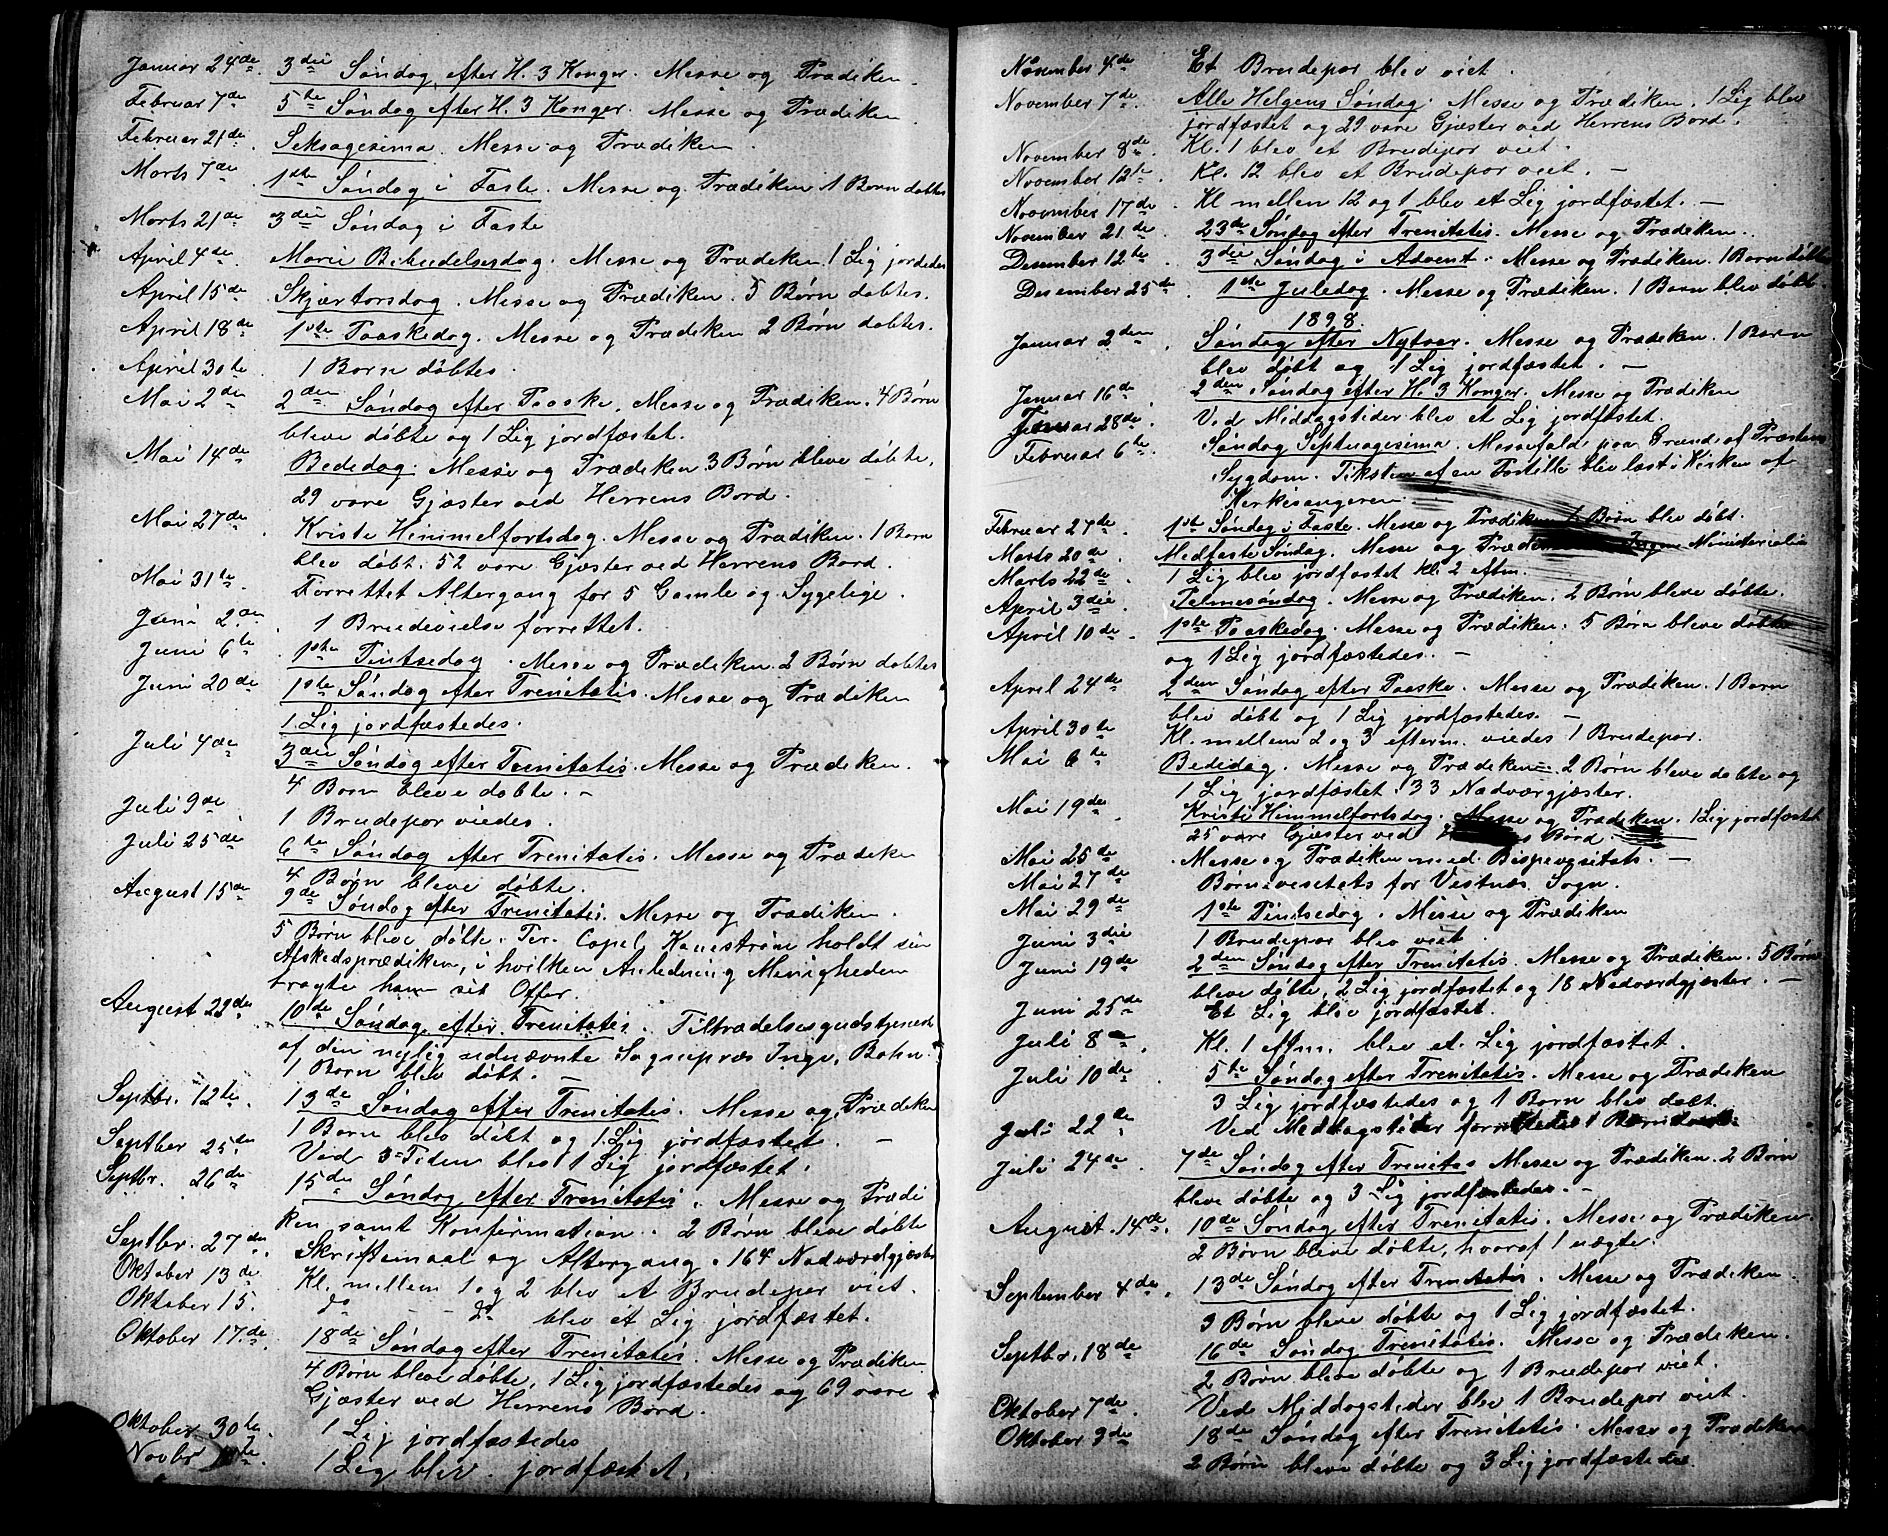 Januar 24de. 3die Søndag efter H. 3 Konger. Messe og Prædiken
Februar 7de 5te Søndag efter H. 3 Konger. Messe og Prædiken
Februar 21de. Seksagesima. Messe og Prædiken.
Marts 7de 1ste Søndag i Faste. Messe og Prædiken 1 Barn døbtes
Marts 21de 3die Søndag i Faste
April 4de Mariæ Bebudelsesdag. Messe og Prædiken. 1 Lig jordedes
April 15de Skjærtorsdag. Messe og Prædiken. 5 Børn døbtes.
April 18de 1ste Paaskedag. Messe og Prædiken 2 Børn døbtes.
April 30te 1 Barn døbtes.
Mai 2de 2den Søndag efter Paaske. Messe og Prædiken. 4 Børn
bleve døbte og 1 Lig jordfæstet.
Mai 14de Bededag. Messe og Prædiken 3 Børn bleve døbte.
29 vare Gjæster ved Herrens Bord.
Mai 27de. Kriste Himmelfartsdag. Messe og Prædiken. 1 Barn
blev døbt. 52 vare Gjæster ved Herrens Bord.
Mai 31te Forrettet Altergang for 5 Gamle og Sygelige.
Juni 2den. 1 Brudevielse forrettet.
Juni 6te 1ste Pintsedag. Messe og Prædiken. 2 Børn døbtes
Juni 20de 1ste Søndag efter Trenitatis. Messe og Prædiken
1 Lig jordfæstedes.
Juli 4de 3die Søndag efter Trenitatis. Messe og Prædiken.
4 Børn bleve døbte. —
Juli 9de 1 Brudepar viedes.
Juli 25de 6te Søndag efter Trenitatis. Messe og Prædike
4 Børn bleve døbte.
August 15de 9de Søndag efter Trenitatis. Messe og Prædiken.
5 Børn bleve døbte. Per. Capel. Kanestrøm holdt sin
Afskedsprædiken, i hvilken Anledning Menigheden
bragte ham sit Offer.
August 22de 10de Søndag efter Trenitatis. Tiltrædelsesgudstjeneste
af den nylig udnævnte Sognepræs Ingv. Bøhn.
1 Barn blev døbt. —
Septbr. 12te. 13de Søndag efter Trenitatis. Messe og Prædiken
1 Barn blev døbt og 1 Lig jordfæstet. —
Septber 25de Ved 3-Tiden blev 1 Lig jordfæstet.
Septbr. 26de 15de Søndag efter Trenitatis. Messe og Prædi
ken samt Konfirmation. 2 Børn bleve døbte
Septbr. 27de. Skriftemaal og Altergang. 164 Nadværdgjæster
Oktober 13de Kl. mellem 1 og 2 blev et Brudepar viet.
Oktober 15. do — — do blev et Lig jordfæstet.
Oktober 17.de 18de Søndag efter Trenitatis. Messe og Prædiken
4 Børn bleve døbte, 1 Lig jordfæstedes og 69 vare
Gjæster ved Herrens Bord.
Oktober 30te. 1 Lig jordfæstedes
Novbr 1 Lig blev jordfæstet.
November 4de Et Brudepar blev viet.
November 7de. Alle Helgens Søndag. Messe og Prædiken. 1 Lig blev
jordfæstet og 29 vare Gjæster ved Herrens Bord.
November 8de. Kl. 1 blev et Brudepar viet.
November 12te Kl. 12 blev et Brudepar viet. —
November 17de Kl mellem 12 og 1 blev et Lig jordfæstet. —
November 21de 23de Søndag efter Trenitatis. Messe og Prædiken.
Desember 12te 3die Søndag i Advent. Messe og Prædiken. 1 Barn døbt
Desember 25de. 1ste Juledag. Messe og Prædiken. 1 Barn blev døbt.
1898.
Januar 2den. Søndag efter Nytaar. Messe og Prædiken. 1 Barn
blev døbt og 1 Lig jordfæstet. —
Januar 16de 2den Søndag efter H. 3 Konger. Messe og Prædiken
Januar 28de. Ved Middagstider blev et Lig jordfæstet.
Februar 6te Søndag Septuagesima. Messefald paa Grund af Præstens
Sygdom. Teksten af en Postille blev læst i Kirken af
Kirkesangeren
Februar 27de. 1ste Søndag i Faste. Messe og Prædiken 1 Børn blev døbt.
Marts 20de Midfaste Søndag. Messe og Prædiken Ingen Ministerialia
Marts 22de 1 Lig blev jordfæstet kl. 2 eftm.
April 3die Palmesøndag. Messe og Prædiken. 2 Børn bleve døbte.
April 10de. 1ste Paaskedag. Messe og Prædiken. 5 Børn bleve døbte
og 1 Lig jordfæstedes. —
April 24de 2den Søndag efter Paaske. Messe og Prædiken. 1 Barn
blev døbt og 1 Lig jordfæstedes. —
April 30te Kl. mellem 2 og 3 efterm. viedes 1 Brudepar.
Mai 6te Bededag. Messe og Prædiken. 2 Børn bleve døbte og
1 Lig jordfæstet. 33 Nadværgjæster.
Mai 19de Kristi Himmelfartsdag. Messe og Prædiken. 1 Lig jordfæstet
25 vare Gjæster ved Bord.
Mai 25de Messe og Prædiken med Bispevisitats. —
Mai 27de Børnevesitats for Vestnæs Sogn.
Mai 29de 1ste Pintsedag. Messe og Prædiken
Juni 3die 1 Brudepar blev viet
Juni 19de 2den Søndag efter Trenitatis. Messe og Prædiken. 5 Børn
bleve døbte, 2 Lig jordfæstet og 18 Nadvardgjæster. —
Juni 25de Et Lig blev jordfæstet.
Juli 8 — . Kl. 1 eftm. blev et Lig jordfæstet.
Juli 10de. 5te Søndag efter Trenitatis. Messe og Prædiken
3 Lig jordfæstedes og 1 Barn blev døbt.
Juli 22de Ved Meddagstider forrettedes 1 Barndaab.
Juli 24de 7de Søndag efter Trenitas Messe og Prædiken. 2 Børn
bleve døbte og 3 Lig jordfæstedes. —
August. 14de. 10de Søndag efter Trenitatis. Messe og Prædiken.
2 Børn bleve døbte, hvoraf 1 uægte.
September 4de. 13de Søndag efter Trenitatis. Messe og Prædiken.
3 Børn bleve døbte og 1 Lig jordfæstet.
Septbr. 18de 16de Søndag Trenitatis. Messe og Prædiken.
2 Børn bleve døbte og 1 Brudepar viet.
Oktober 7de. Ved Middagstider blev 1 Brudepar viet.
Oktober 9de 18de Søndag efter Trenitatis. Messe og Prædiken
2 Børn bleve døbte og 3 Lig jordfæstedes.